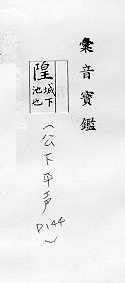 彙音寶鑑
隍城下池也
(公下平声
P144)